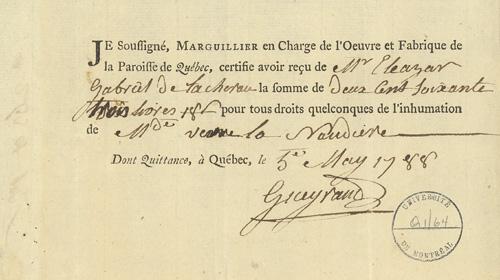 JE Soussigné, MARGUILLIER en Charge de l'Oeuvre et Fabrique de
la Paroisse de Québec, certifie avoir reçu de Mr Eleazar
Gabriel de la somme de deux Cent Soixante
trois livres pour tous droits quelconques de l'inhumation
de Mde veuve la Naudière
Dont Quittance, à Québec, le 5e May 1788
UNIVERSITÉ
Q1/64
DE MONTRÉAL